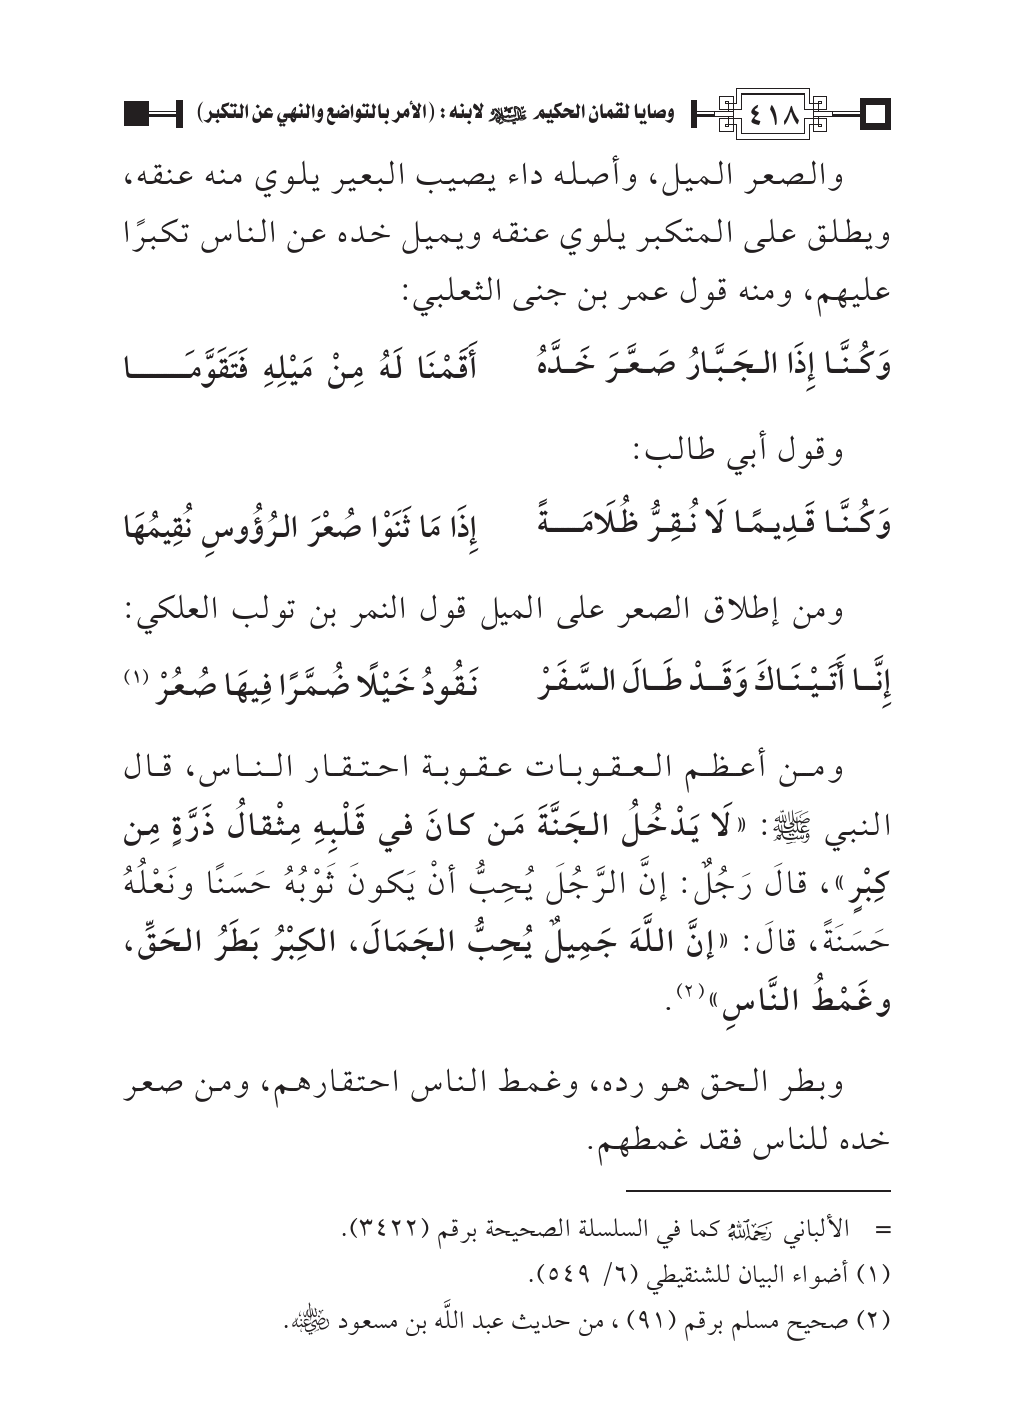 ٤١٨
وصايا لقمان الحكيم عليه السلام لابنه : (الأمر بالتواضع والنهي عن التكبر)
والصعر الميل، وأصله داء يصيب البعير يلوي منه عنقه،
ويطلق على المتكبر يلوي عنقه ويميل خده عن الناس تكبرًا
عليهم، ومنه قول عمر بن جنى الثعلبي:
وَكُنَّا إِذَا الجَبَّارُ صَعَّرَ خَدَّهُ أَقَمْنَا لَهُ مِنْ مَيْلِهِ فَتَقَوَّمَا
وقول أبي طالب:
وَكُنَّا قَدِيمًا لَا نُقِرُّ ظُلَامَةً إِذَا مَا ثَنَوْا صُعْرَ الرُؤُوسِ نُقِيمُهَا
ومن إطلاق الصعر على الميل قول النمر بن تولب العلكي:
إِنَّا أَتَيْنَاكَ وَقَدْ طَالَ السَّفَرْ نَقُودُ خَيْلًا ضُمَّرًا فِيهَا صُعُرْ (١)
ومن أعظم العقوبات عقوبة احتقار الناس، قال
النبي ﷺ: «لَا يَدْخُلُ الجَنَّةَ مَن كانَ في قَلْبِهِ مِثْقالُ ذَرَّةٍ مِن
كِبْرٍ»، قالَ رَجُلٌ: إنَّ الرَّجُلَ يُحِبُّ أنْ يَكونَ ثَوْبُهُ حَسَنًا ونَعْلُهُ
حَسَنَةً، قالَ: «إنَّ اللَّهَ جَمِيلٌ يُحِبُّ الجَمَالَ، الكِبْرُ بَطَرُ الحَقِّ،
وغَمْطُ النَّاسِ»(٢).
وبطر الحق هو رده، وغمط الناس احتقارهم، ومن صعر
خده للناس فقد غمطهم.
= الألباني رحمه الله كما في السلسلة الصحيحة برقم (٣٤٢٢).
(١) أضواء البيان للشنقيطي (٦/ ٥٤٩).
(٢) صحيح مسلم برقم (٩١) ، من حديث عبد اللَّه بن مسعود رضي الله عنه.